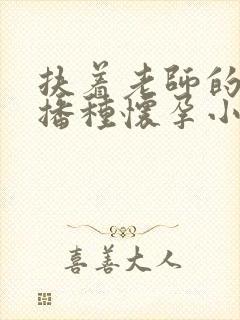 扶着老師的
播種懷孕小
喜善大人